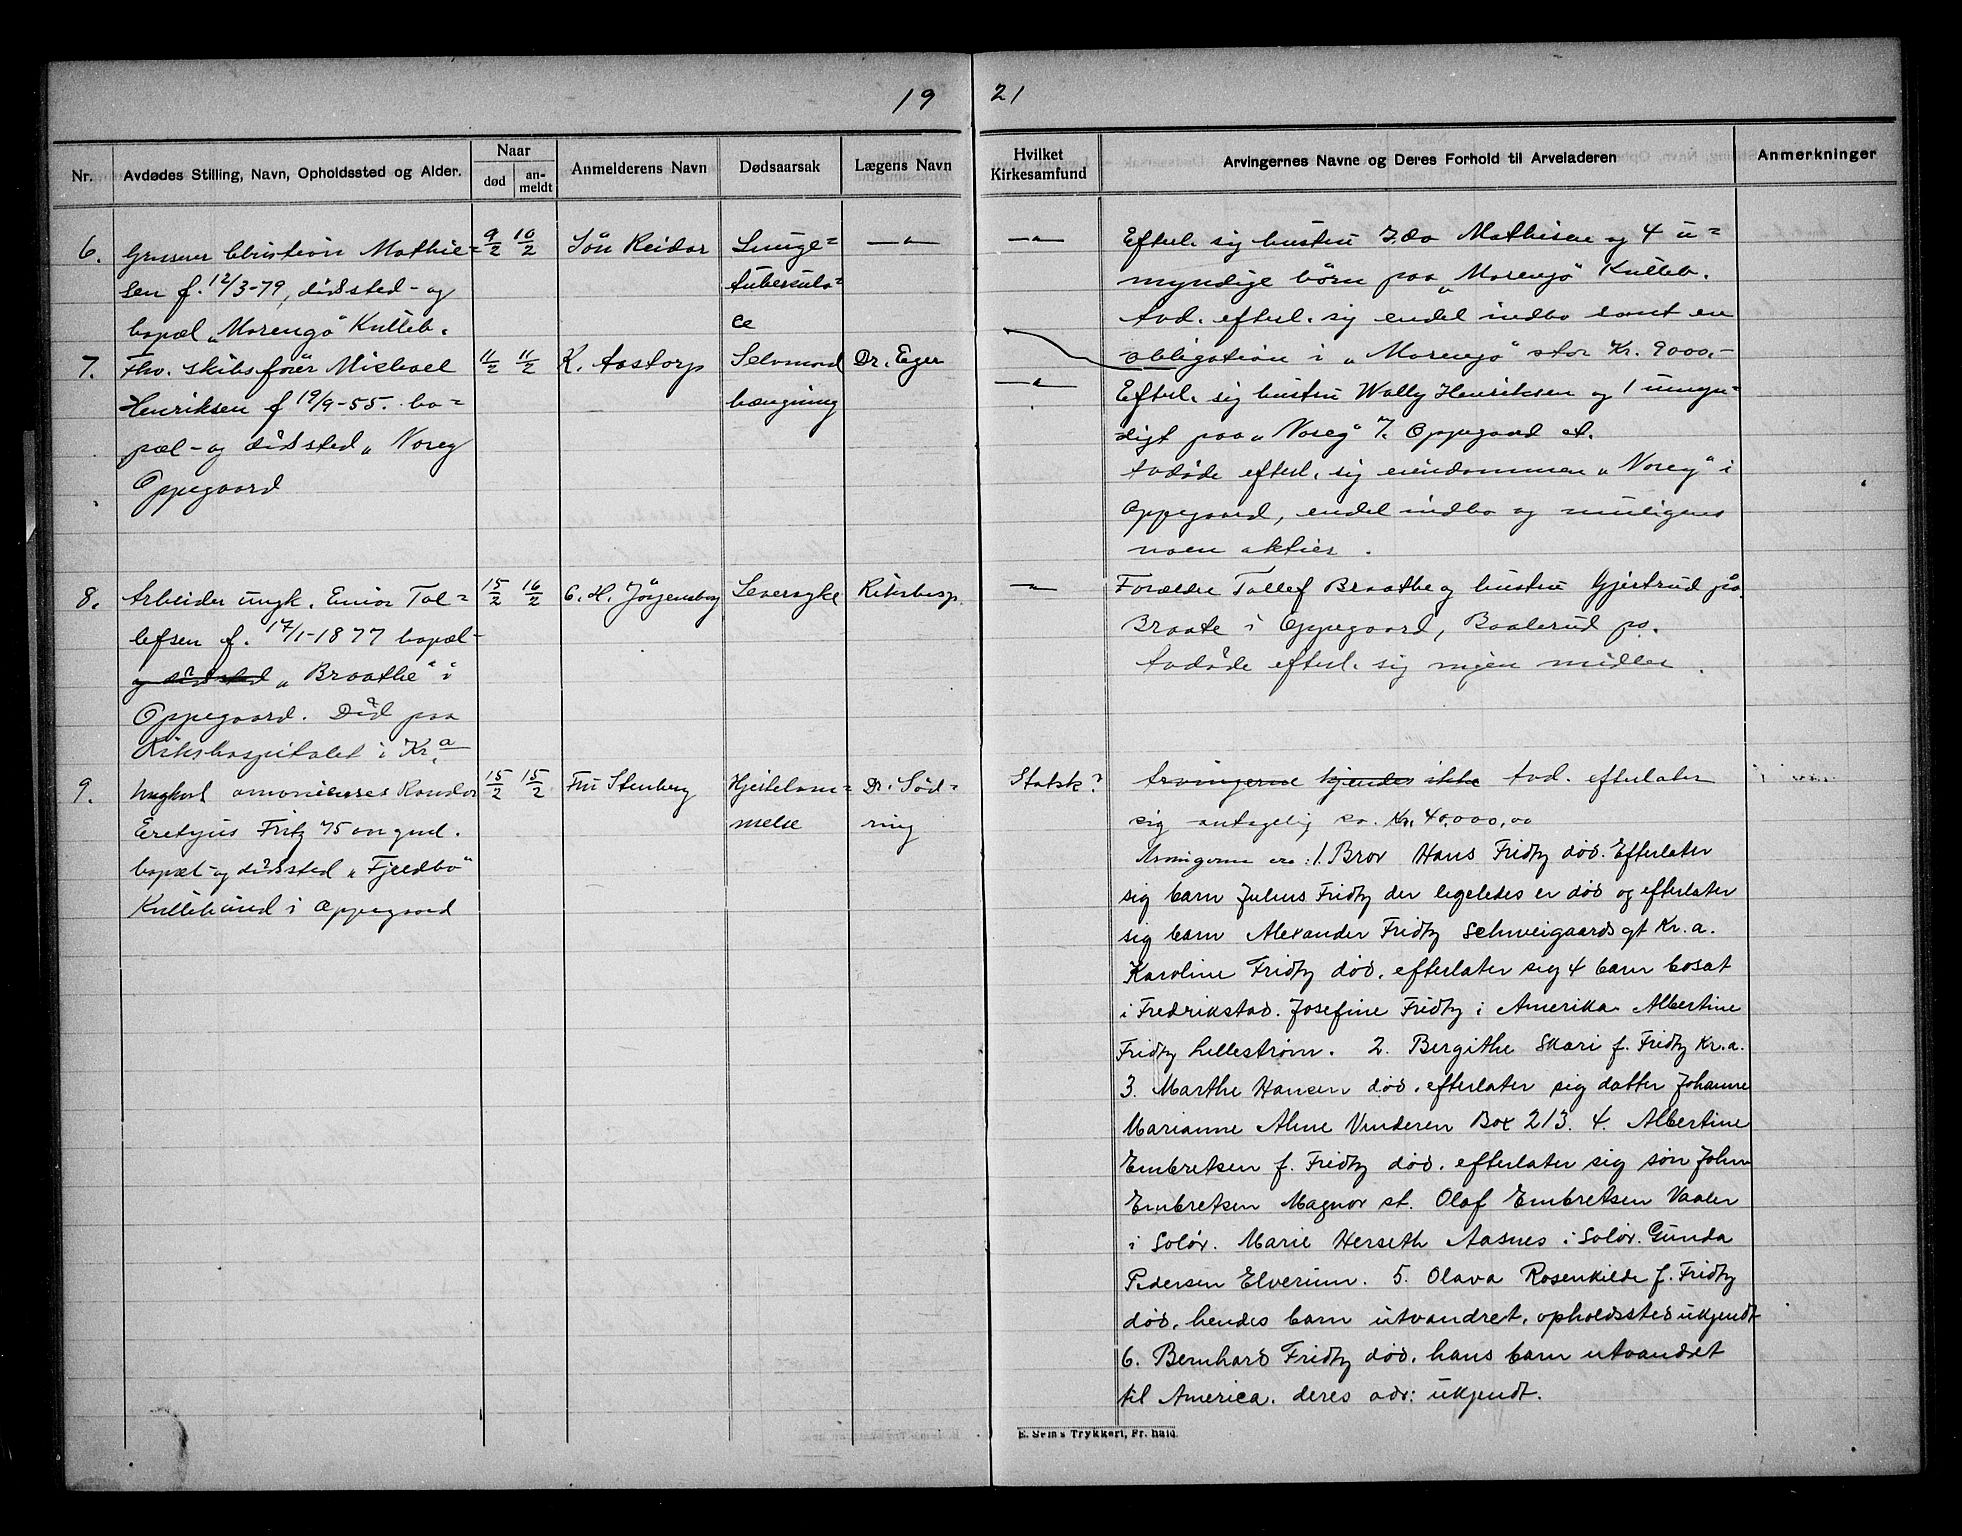 19 21
Nr. Avdødes Stilling, Navn, Opholdssted og Alder. Naar død an-meldt Anmelderens Navn Dødsaarsak Lægens Navn Hvilket Kirkesamfund Arvingernes Navne og Deres Forhold til Arveladeren Anmerkninger
6. Christian Mathie=
sen f. 12/3-79, dødssted- og
bopæl „Marengo" Kulleb.
9/2 10/2
Sön Reidar
Lunge=
tuberculo=
ce
—"—
—"—
Efterl. sig hustru Ida Mathisen og 4 u=
myndige börn paa „Marengo" Kulleb.
Avd. efterl. sig endel indbo samt en
obligation i „Marengo" stor Kr. 9000.-
7. Fhv. skibsförer Michael
Henriksen f 19/9-55. bo=
pæl- og dödssted „Noreg
Oppegaard
11/2 11/2
K. Aastorp
Selvmord
hængning
Dr. Eger
—"—
Efterl. sig hustru Wally Henriksen og 1 umyn=
digt paa „Noreg" i Oppegaard st.
Avdöde efterl. sig eiendommen „Noreg" i
Oppegaard, endel indbo og muligens
noen aktier.
8. Arbeider ungk. Einar Tol=
lefsen f. 17/1-1877 bopæl-
og dödssted „Braathe" i
Oppegaard. Död paa
Rikshospitalet i Kr.a
15/2 16/2
C. H. Jörgensborg
Leversyke
Rikshosp.
—"—
Forældre Tollef Braathe og hustru Gjertrud paa
Braate i Oppegaard, Baalerud po.
Avdöde efterl. sig ingen midler.
9. Ungkarl Randor
Fritz 75 aar gml.
bopæl- og dödssted „Fjeldbo"
Kullebund i Oppegaard
15/2 15/2
Fru Stenberg
Hjertelam=
melse
Dr. Söd=
ring
Statsk?
Arvingerne kjendes ikke Avd. efterlater
sig antagelig ca. Kr. 40,000,00
Arvingerne er: 1. Bror Hans Fridtz død. Efterlater
sig barn Julius Fridtz der ligeledes er død og efterlater
sig barn Alexander Fridtz Schweigaards gt Kr.a.
Karoline Fridtz død, efterlater sig 4 barn bosat
i Fredrikstad. Josefine Fridtz i Amerika Albertine
Fridtz Lillestrøm. 2. Bergithe Skari f. Fridtz Kr.a.
3. Marthe Hansen død. efterlater sig datter Johanne
Marianne Alme Vinderen Box 213. 4. Albertine
Embretsen f. Fridtz død. efterlater sig søn John
Embretsen Magnor st. Olaf Embretsen Vaaler
i Solør. Marie Herseth Aasnes i Solør. Gunda
Pedersen Elverum. 5. Olava Rosenkilde f. Fridtz
død, hendes barn utvandret, opholdssted ukjendt
6. Bernhard Fridtz død, hans barn utvandret
til America. deres adr: ukjendt.
E. Sem's Trykkeri, Fr.hald.